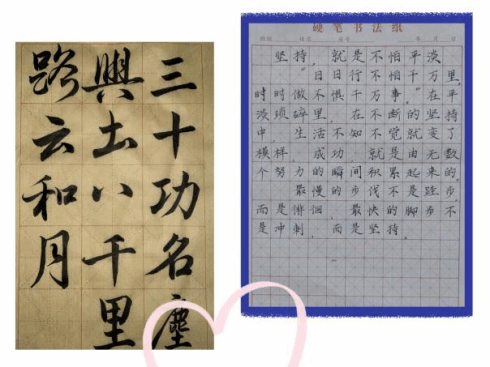 三十功名塵
與土八千里
路云和月
硬笔书法纸
坚持，就是不怕平淡
日日行不怕千万里
时时做不惧千万事。在平
淡琐碎里，在不断的坚持
中，生活不知不觉就变了
模样。成功，就是由无数
个努力的瞬间积累起来的，
最慢的步伐不是跬步，
而是徘徊，最快的脚步不
是冲刺，而是坚持。